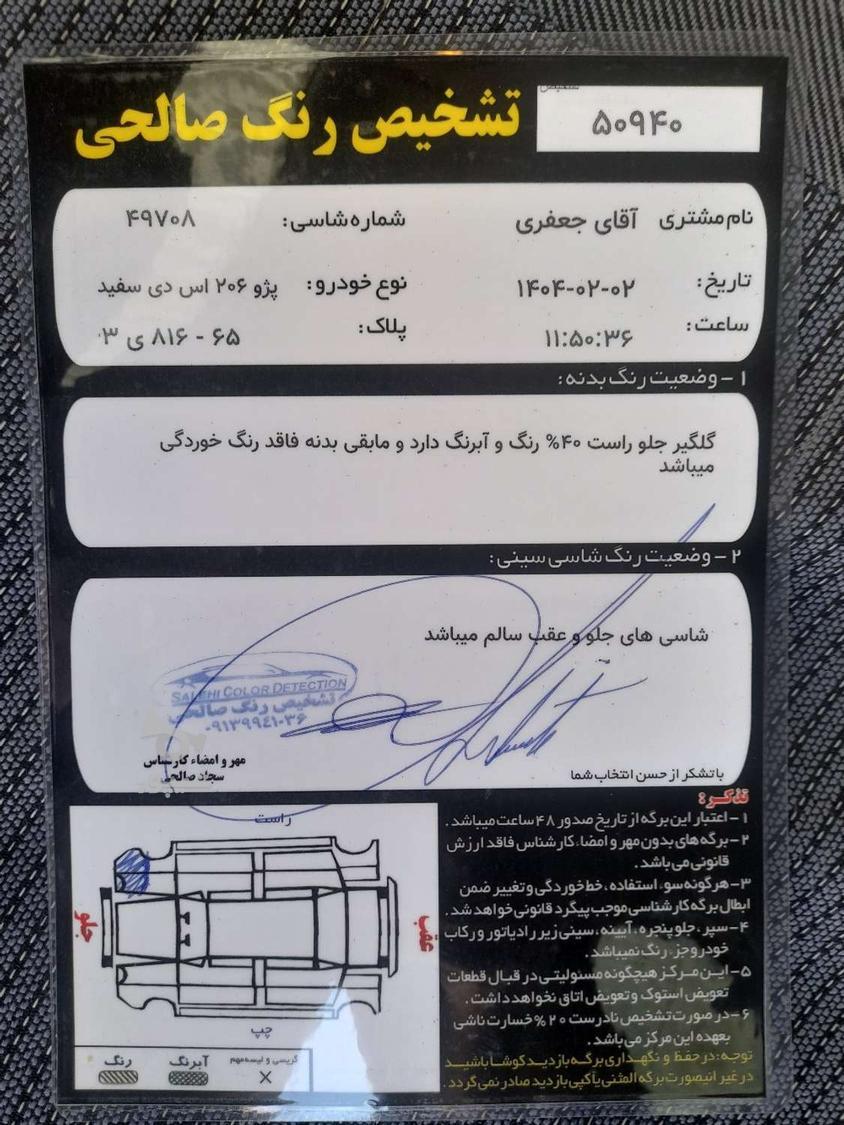 تشخیص رنگ صالحی
تشخیص
۵۰۹۴۰
نام مشتری آقای جعفری شماره شاسی: ۴۹۷۰۸
تاریخ: ۱۴۰۴-۰۲-۰۲ نوع خودرو: پژو ۲۰۶ اس دی سفید
ساعت: ۱۱:۵۰:۳۶ پلاک: ۶۵ - ۸۱۶ ی ۳
۱ - وضعیت رنگ بدنه:
گلگیر جلو راست ۴۰% رنگ و آبرنگ دارد و مابقی بدنه فاقد رنگ خوردگی
میباشد
۲ - وضعیت رنگ شاسی سینی:
شاسی های جلو و عقب سالم میباشد
SALEHI COLOR DETECTION
تشخیص رنگ صالحی
۰۹۱۳۹۹٤۱۰۳۶
مهر و امضاء کارشناس
سجاد صالحی
با تشکر از حسن انتخاب شما
تذکر:
۱- اعتبار این برگه از تاریخ صدور ۴۸ ساعت میباشد.
۲- برگه های بدون مهر و امضاء کارشناس فاقد ارزش
قانونی می باشد.
۳- هرگونه سوء استفاده، خط خوردگی و تغییر ضمن
ابطال برگه کارشناسی موجب پیگرد قانونی خواهد شد.
۴- سپر، جلو پنجره، آیینه، سینی زیر رادیاتور و رکاب
خودرو جزء رنگ نمیباشد.
۵- این مرکز هیچگونه مسئولیتی در قبال قطعات
تعویض استوک و تعویض اتاق نخواهد داشت.
۶- در صورت تشخیص نادرست ۲۰% خسارت ناشی
بعهده این مرکز می باشد.
توجه: در حفظ و نگهداری برگه بازدید کوشا باشید
در غیر اینصورت برگه المثنی یا کپی بازدید صادر نمی گردد.
راست
جلو
عقب
چپ
رنگ
آبرنگ
گریسی و لیسه مهم
X